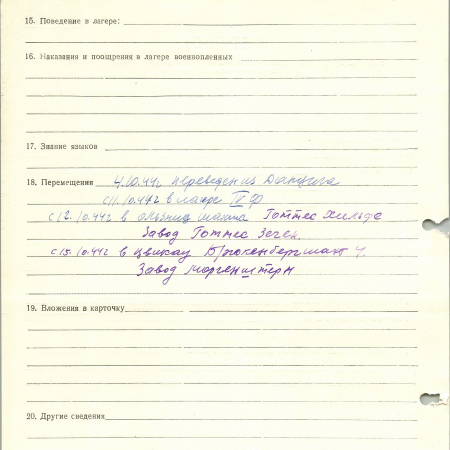 15. Поведение в лагере:
16. Наказания и поощрения в лагере военнопленных
17. Знание языков
18. Перемещения 4.10.44г переведен из Данцига
с 11.10.44г в лагерь IV Ф
с 12.10.44г в шахта Готтес Хильфе
Завод Готтес Зеген.
с 15.10.44г в Цвикау Брюкенбергшахт
Завод Моргенштерн
19. Вложения в карточку
20. Другие сведения